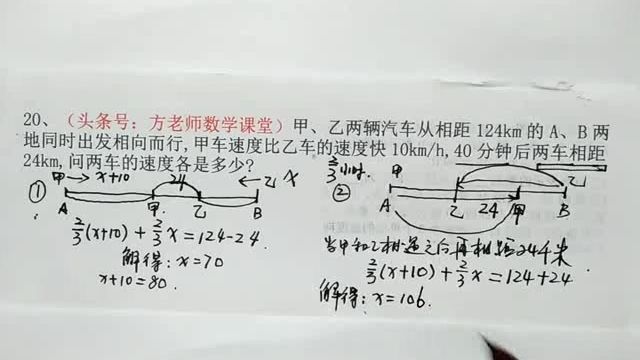 20、(头条号：方老师数学课堂)甲、乙两辆汽车从相距124km的A、B两
地同时出发相向而行,甲车速度比乙车的速度快10km/h,40分钟后两车相距
24km,问两车的速度各是多少?
2/3小时.
甲→ x+10 24 ←乙 x
① A 甲 乙 B
甲 乙
② A 乙 24 甲 B
2/3(x+10)+2/3x=124-24.
解得：x=70
x+10=80.
当甲和乙相遇之后再相距24千米
2/3(x+10)+2/3x=124+24
解得：x=106.